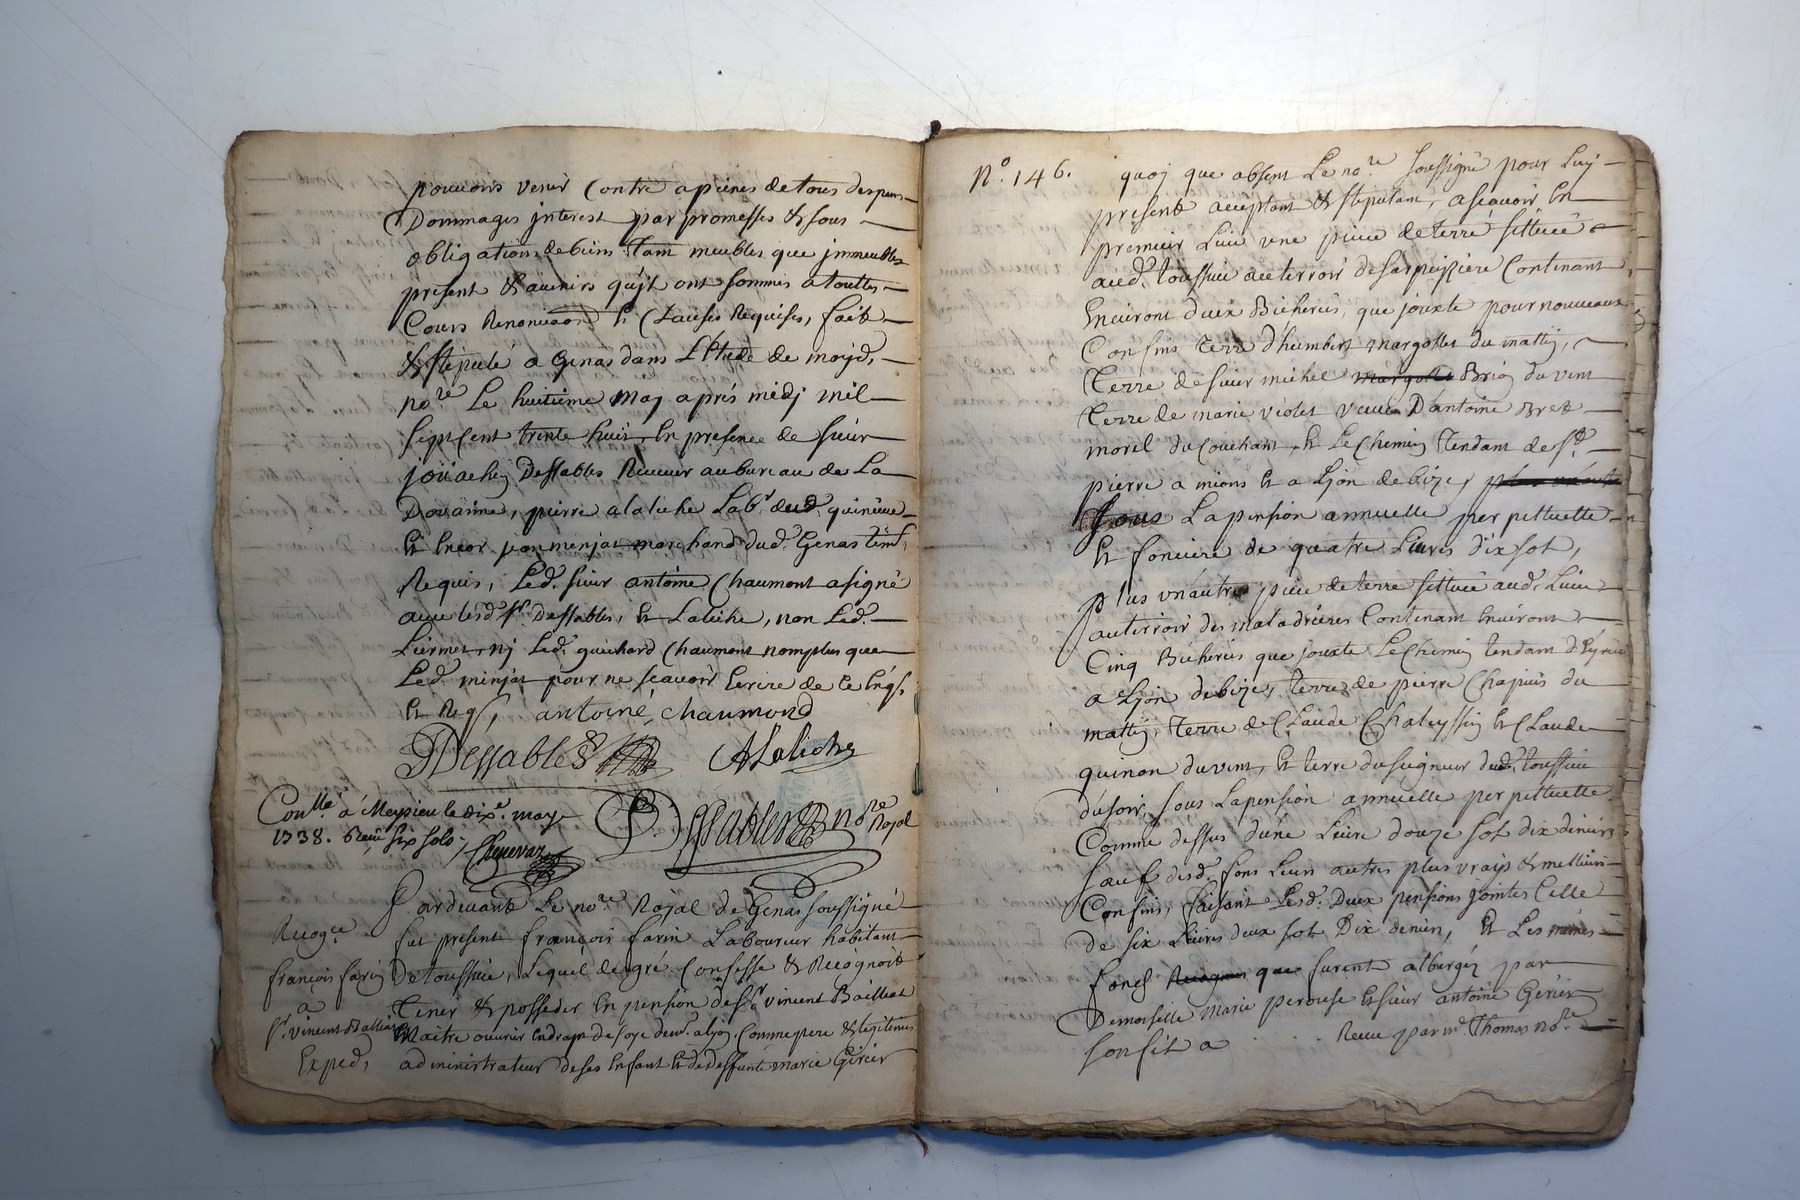 pouvoir venir Contre apeines de tous despens
Dommages jnterest par promesses & sous
obligations de biens tam meubles que jmmeubles
present & avenirs qu'jl ont sommis a touttes
Cours Renonciaon Et Clauses Requises, fait
& stipulé a Genas dans L'Etude de moyd.
no.re Le huitieme may aprés midj mil
sept Cent trente huit, En presence de sieur
joüachin Dessables Receveur au bureau de La
Doüanne, pierre alaliche Lab.r dud.
Et Encor jean menjat marchand dud. Genas tém.
Requis, Led. sieur antoine Chaumont a signé
avec lesd. sr. Dessables, Et Laliche, non Led.
nj Led. guichard Chaumont nomplus que
Led. menjat pour ne sçavoir Ecrire de ce Enqs.
Et Reqs, antoine chaumond
Dessables ALaliche
Con.llé á Meysieu le dix.e may
1738. Receu six sols, Chenevaz
Dessables no.re Royal
Pardevant Le no.re Royal de Genas soussigné
Recog.ce
fut present françois farin Laboureur habitant
françois farin
De toussieu, Lequel de gré Confesse & Recognoit
a
Tenir & posseder En pension de sr. vincent Bailliat
sr. vincent Balliat
Maitre ouvrier En drap de soye a Lyon, Comme pere & legitime
Exped.
administrateur de ses Enfant Et de deffunte marie Girier
N.o 146.
quoj que absent Le no.re soussigné pour Luy
present acceptant & stipulant, a sçavoir En
premier Lieu une piece de terre sittuée
aud. toussieu au terroir de Contenant
Environt deux Bicherées, que jouxte pour nouveaux
Confins terre d'humbert margottet du matin,
Terre de sieur michel margotte Brig du vent
terre de marie violet veuve D'antoine Bret
morel du Couchant, Et Le Chemin Tendant de St.
pierre a mions Et a Lyon de bize,
sous La pension annuelle perpettuelle
Et fonciere de quatre Livres dix sol,
plus un'autre piece de terre sittuée aud. Lieu
au terroir des maladrieres Contenant Environt
Cinq Bicherées que jouxte Le Chemin tendant
a Lyon de bize, terre de pierre Chapuis du
mattin, terre de Claude Chaleyssin Et Claude
quinon du vent, Et terre du seigneur dud. toussieu
du soir, sous La pension annuelle perpettuelle
Comme dessus d'une Livre douze sol dix deniers
sauf desd. fons Leurs autres plus vrays & meilleurs
Confins, faisant Lesd. Deux pensions jointes Celle
de six Livres deux sol Dix denier, Et Les mémes
fonds que furent albergéz par
Demoiselle marie perouse Et sieur antoine Girier
son fils a . . . Receu par me. Thomas no.re